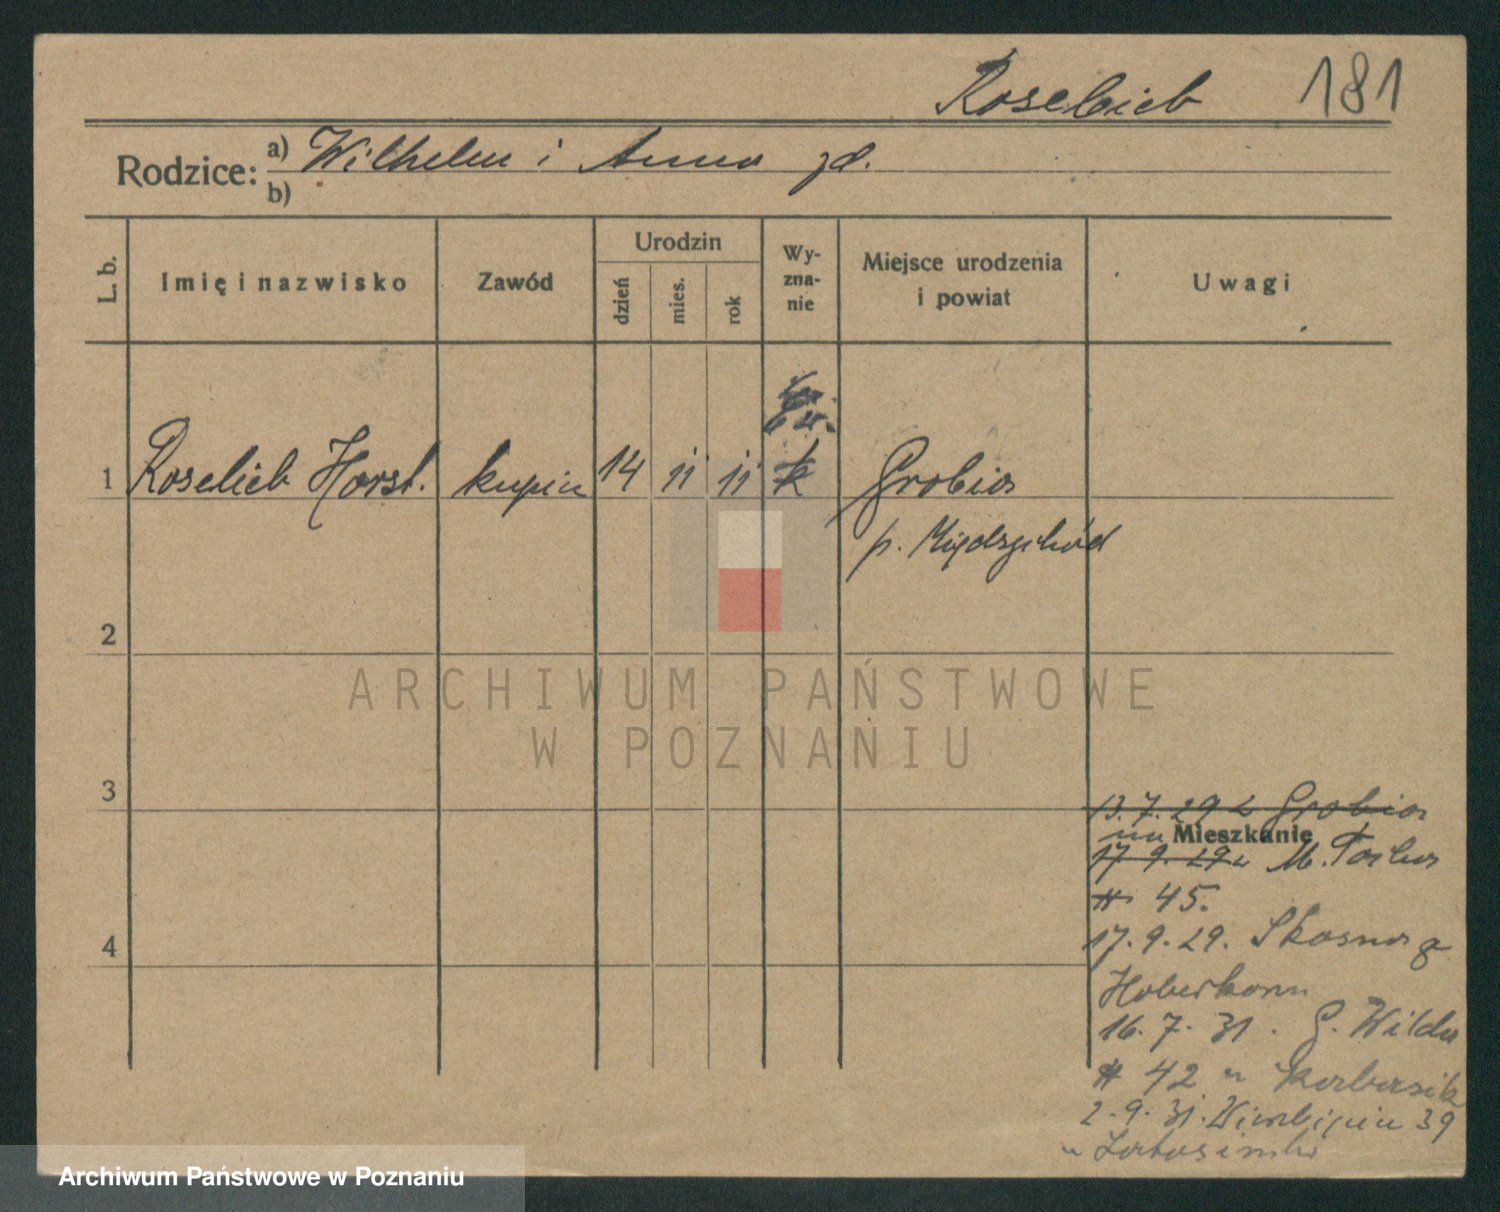 Roselieb 181
Rodzice: a) Wilhelm i Anna zd.
b)
L. b. Imię i nazwisko Zawód Urodzin dzień mies. rok Wy-zna-nie Miejsce urodzenia i powiat Uwagi
1 Roselieb Horst. kupiec 14 11 11 k Ew. Grobia
p. Międzychód
2
3
13.7.29 z Grobia
Mieszkanie
17.9.29 M. Focha
45.
17.9.29. Skosna
16.7.31. G. Wilda
42 u
2.9.31. Wierzbięcice 39
u
4
ARCHIWUM PAŃSTWOWE
W POZNANIU
Archiwum Państwowe w Poznaniu